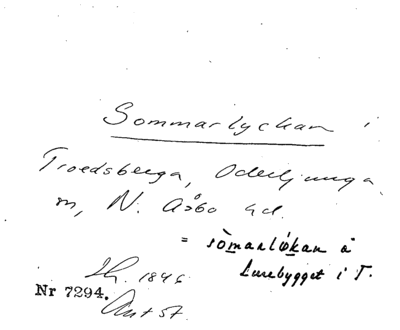 Sommarlyckan i
Troedsberga, Oderljunga
sn, N. Åsbo hd.
= sòmarlỳkan å
Lurebygget i T.
Lh. 1846
Nr 7294.